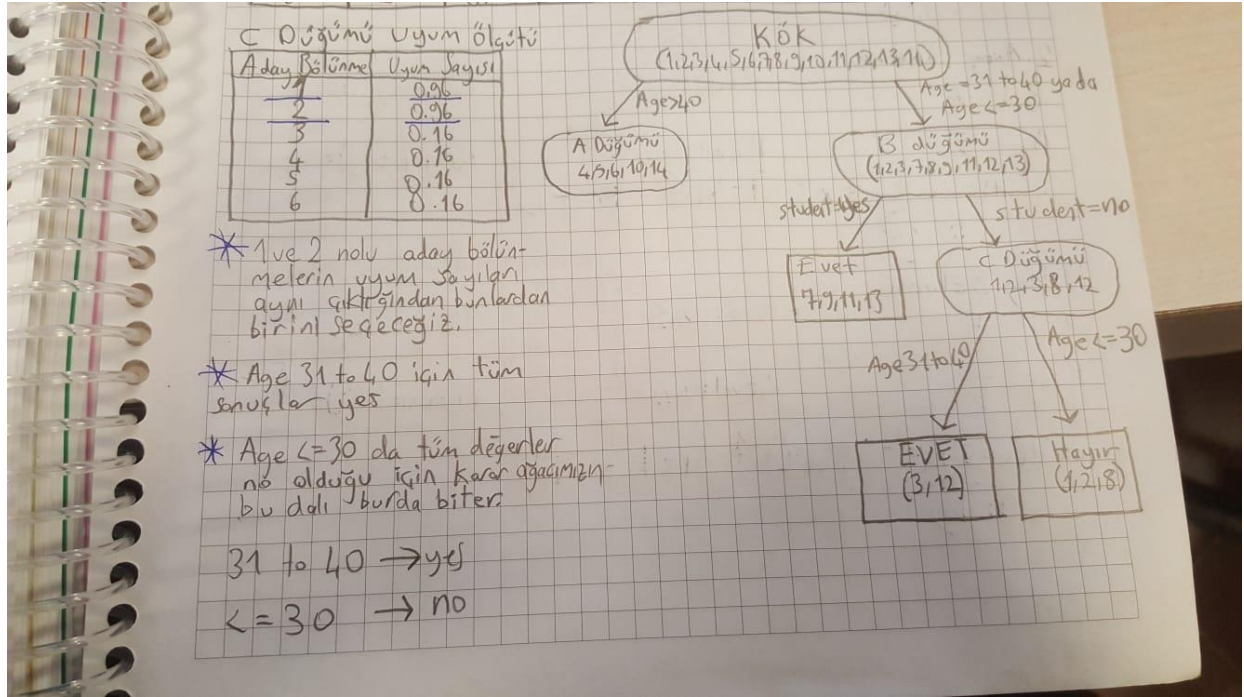 C Düğümü Uyum Ölçütü
Aday Bölünme Uyum Sayısı
1 0.96
2 0.96
3 0.16
4 0.16
5 0.16
6 0.16
* 1 ve 2 nolu aday bölün-
melerin uyum sayıları
aynı çıktığından bunlardan
birini seçeceğiz.
* Age 31 to 40 için tüm
sonuçlar yes
* Age <=30 da tüm değerler
no olduğu için karar ağacımızın
bu dalı burda biter.
31 to 40 → yes
<=30 → no
KÖK
(1,2,3,4,5,6,7,8,9,10,11,12,13,14)
Age>40
Age=31 to 40 yada
Age<=30
A Düğümü
4,5,6,10,14
B düğümü
(1,2,3,7,8,9,11,12,13)
student=yes
student=no
Evet
7,9,11,13
C Düğümü
1,2,3,8,12
Age 31 to 40
Age<=30
EVET
(3,12)
Hayır
(1,2,8)